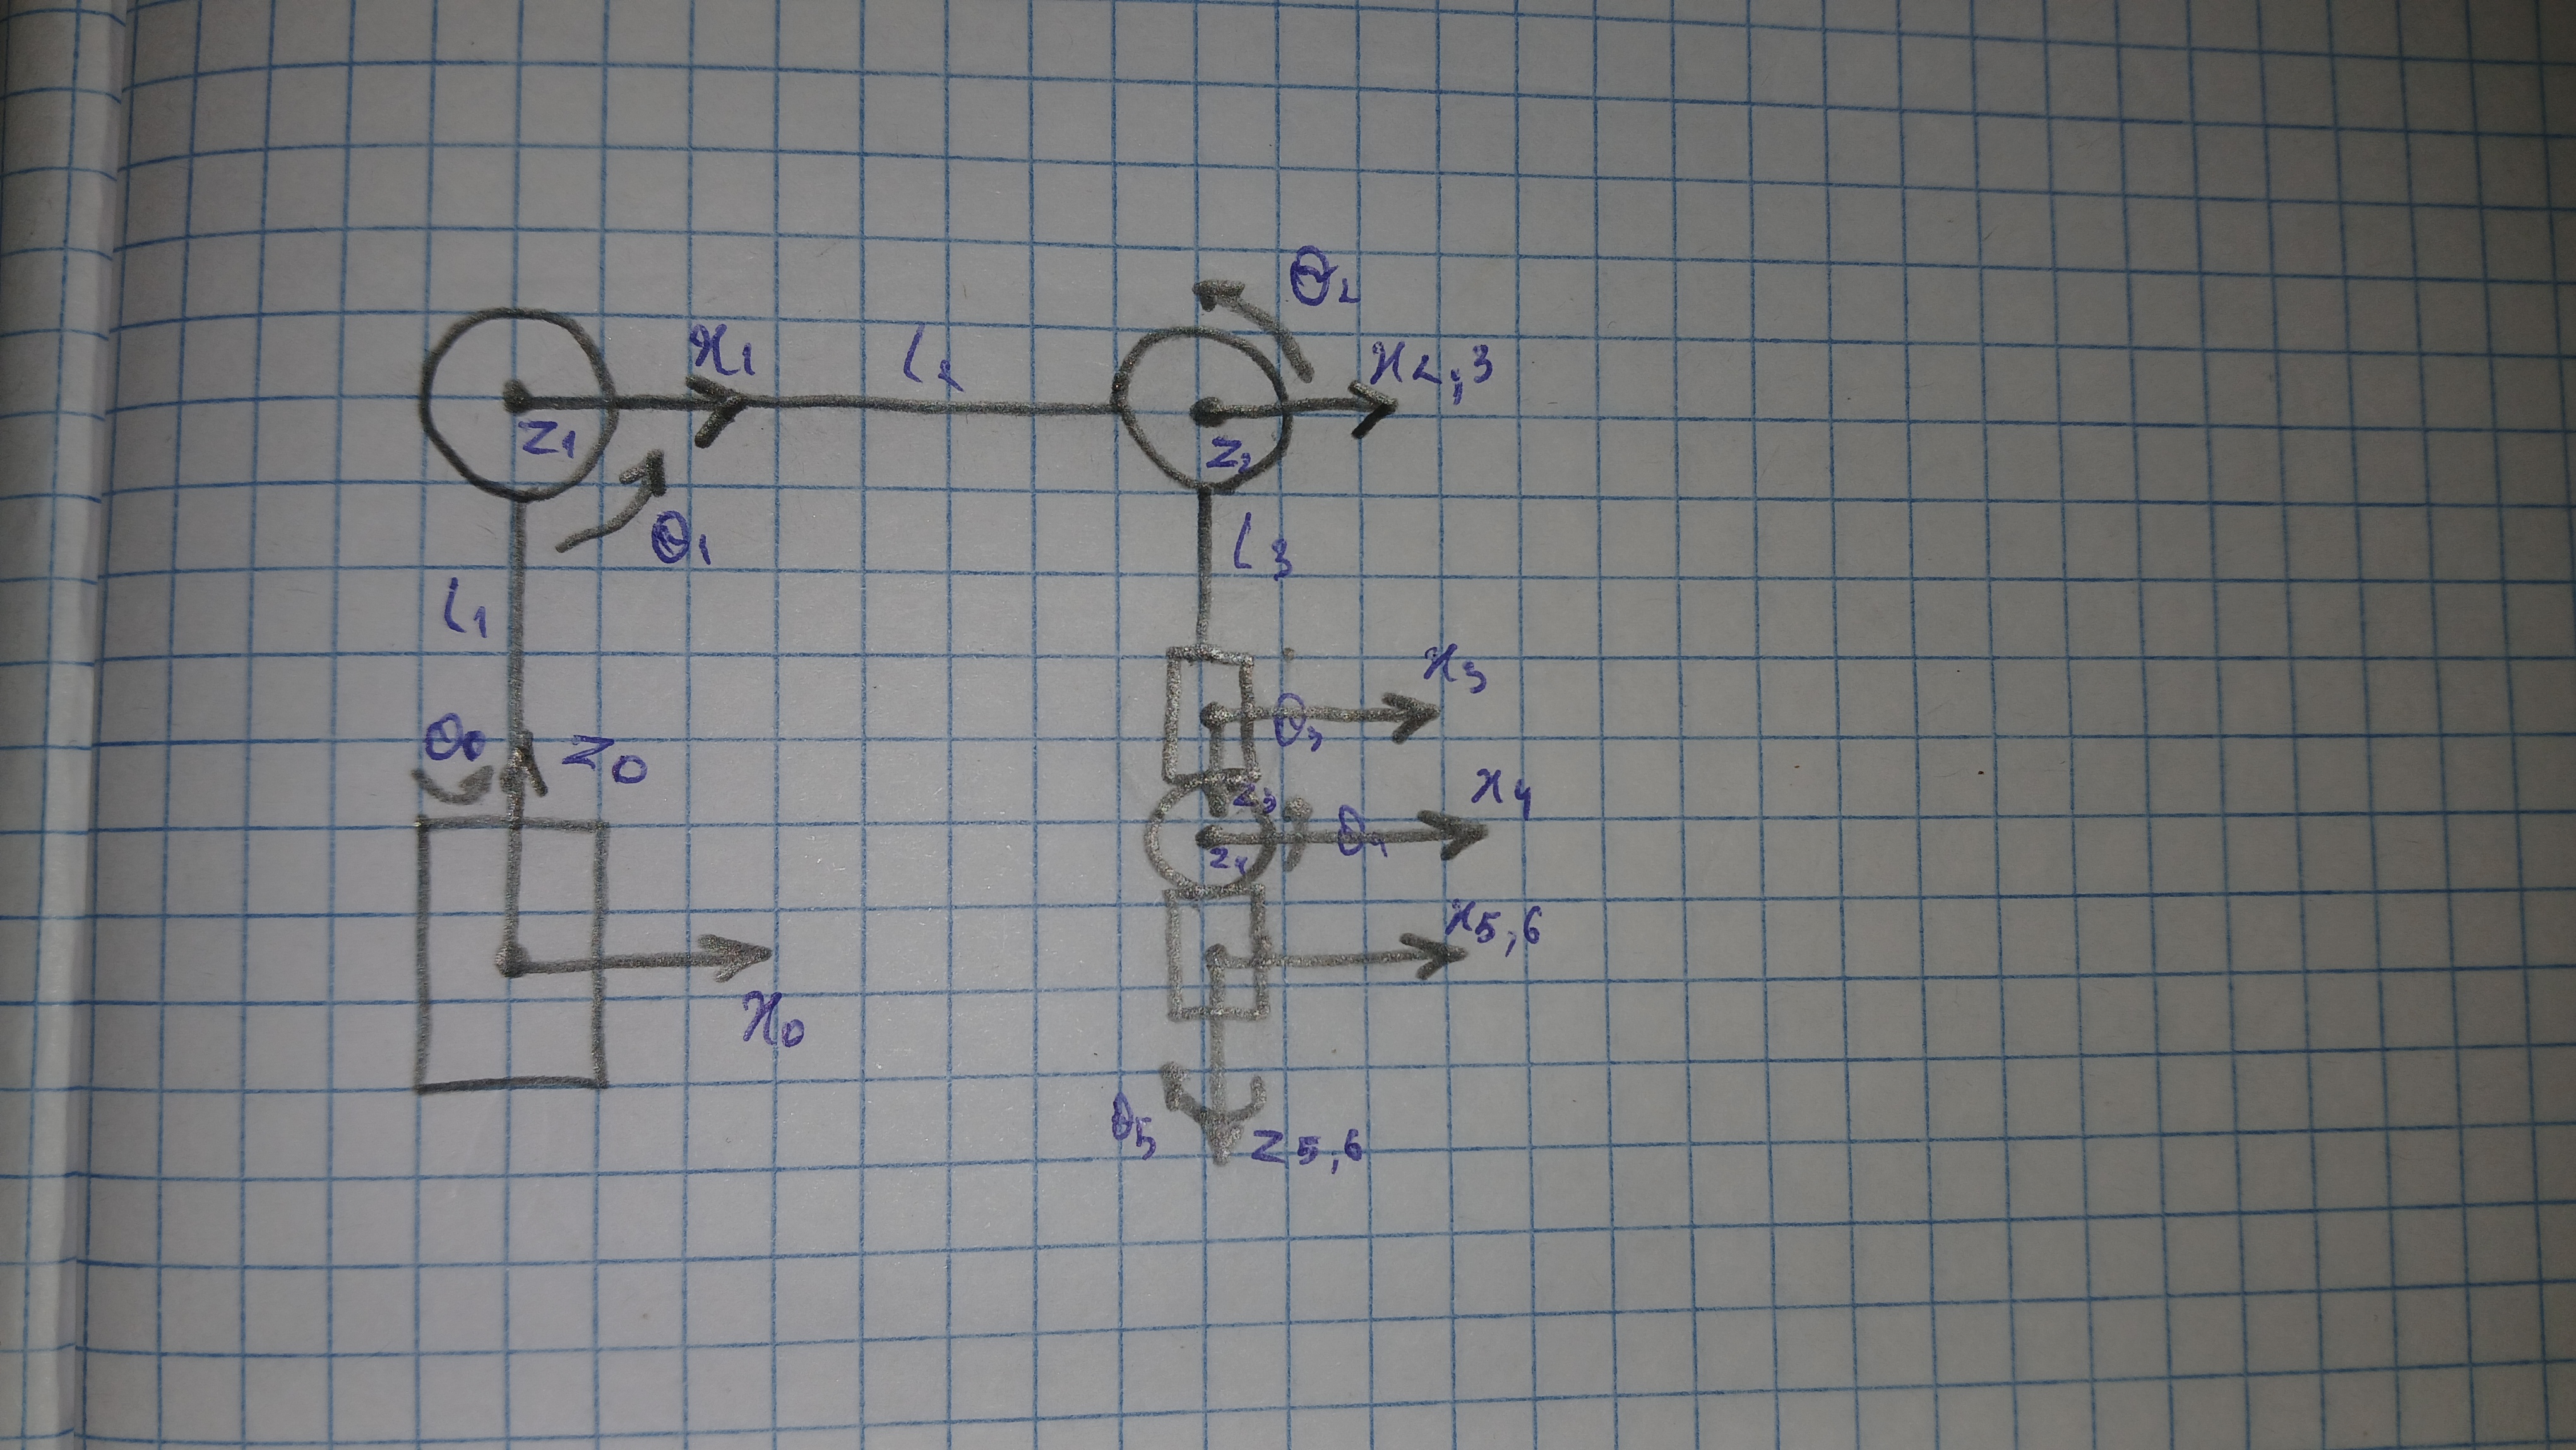 θ2
x1
l2
x2,3
z1
z2
θ1
l3
l1
x3
θ3
θ0
z0
z3
x4
θ4
z4
x5,6
x0
θ5
z5,6